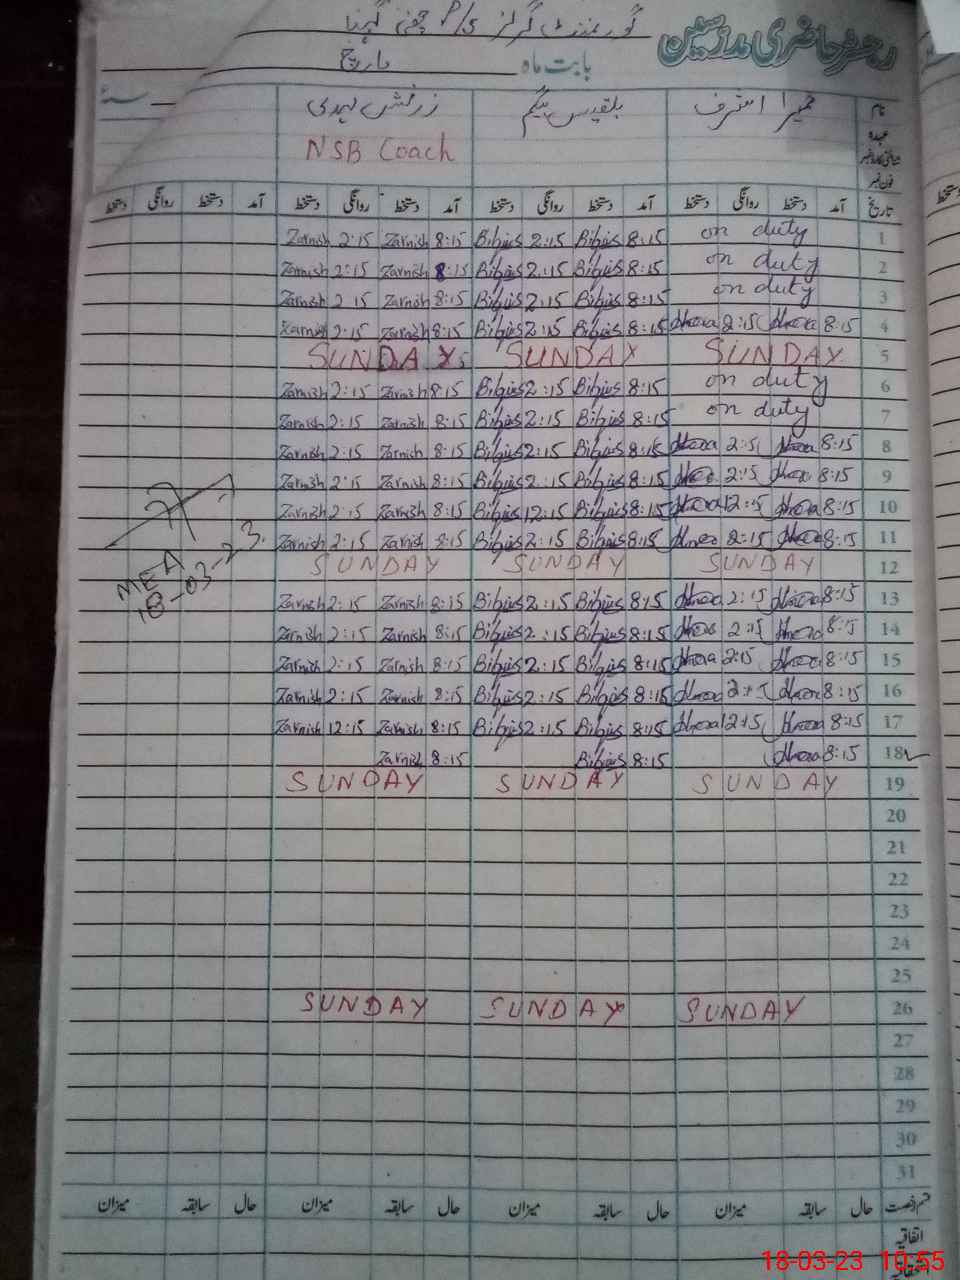 رجسٹر حاضری مدرسین گورنمنٹ گرلز P/S
بابت ماہ مارچ
سنہ
نام حمیرا اشرف بلقیس بیگم
عہدہ NSB Coach
شناختی کارڈ نمبر
فون نمبر
تاریخ آمد دستخط روانگی دستخط آمد دستخط روانگی دستخط آمد دستخط روانگی دستخط آمد دستخط روانگی دستخط
Zarnish 2:15 Zarnish 8:15 Bilqius 2:15 Bilqius 8:15 on duty 1
Zarnish 2:15 Zarnish 8:15 Bilqius 2:15 Bilqius 8:15 on duty 2
Zarnish 2:15 Zarnish 8:15 Bilqius 2:15 Bilqius 8:15 on duty 3
Zarnish 2:15 Zarnish 8:15 Bilqius 2:15 Bilqius 8:15 2:15 8:15 4
SUNDAY SUNDAY SUNDAY 5
Zarnish 2:15 Zarnish 8:15 Bilqius 2:15 Bilqius 8:15 on duty 6
Zarnish 2:15 Zarnish 8:15 Bilqius 2:15 Bilqius 8:15 on duty 7
Zarnish 2:15 Zarnish 8:15 Bilqius 2:15 Bilqius 8:15 2:15 8:15 8
Zarnish 2:15 Zarnish 8:15 Bilqius 2:15 Bilqius 8:15 2:15 8:15 9
Zarnish 2:15 Zarnish 8:15 Bilqius 12:15 Bilqius 8:15 12:15 8:15 10
Zarnish 2:15 Zarnish 8:15 Bilqius 2:15 Bilqius 8:15 2:15 8:15 11
SUNDAY SUNDAY SUNDAY 12
MEA
18-03-23.
Zarnish 2:15 Zarnish 8:15 Bilqius 2:15 Bilqius 8:15 2:15 8:15 13
Zarnish 2:15 Zarnish 8:15 Bilqius 2:15 Bilqius 8:15 2:15 8:15 14
Zarnish 2:15 Zarnish 8:15 Bilqius 2:15 Bilqius 8:15 2:15 8:15 15
Zarnish 2:15 Zarnish 8:15 Bilqius 2:15 Bilqius 8:15 2:15 8:15 16
Zarnish 12:15 Zarnish 8:15 Bilqius 2:15 Bilqius 8:15 12:15 8:15 17
Zarnish 8:15 Bilqius 8:15 8:15 18
SUNDAY SUNDAY SUNDAY 19
20
21
22
23
24
25
SUNDAY SUNDAY SUNDAY 26
27
28
29
30
31
قسم رخصت حال سابقہ میزان حال سابقہ میزان حال سابقہ میزان حال سابقہ میزان
اتفاقیہ
18-03-23 10:55